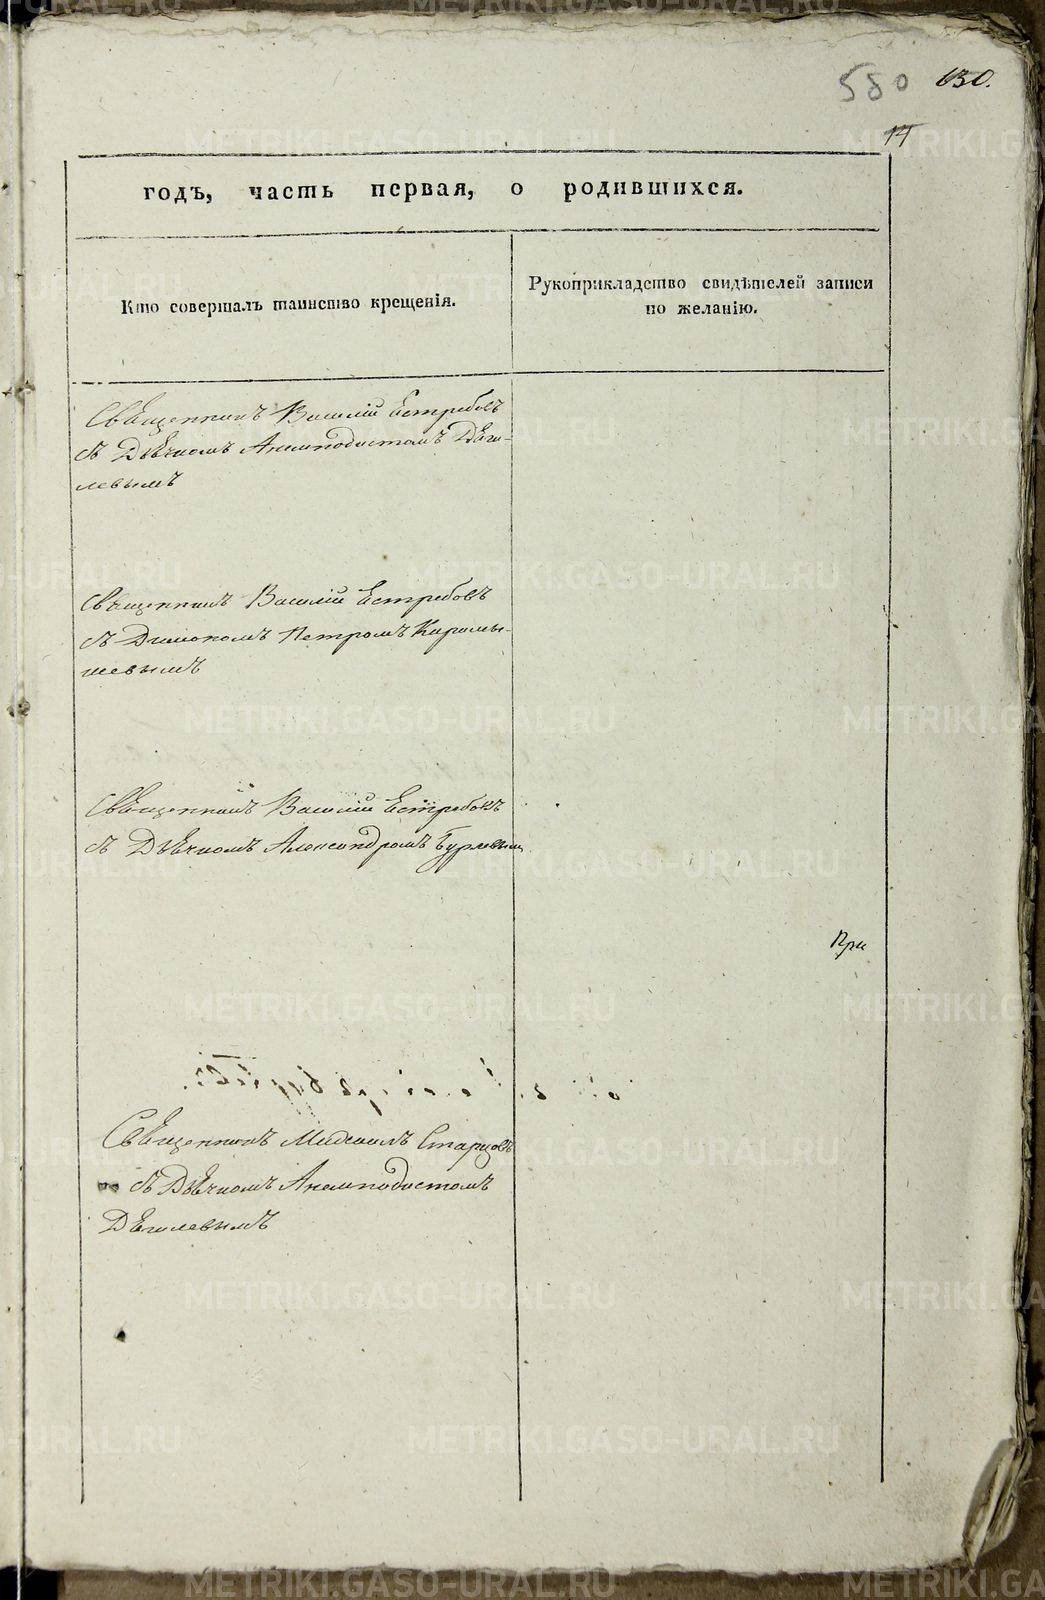 580 130.
14
годъ, часть первая, о родившихся.
Кто совершалъ таинство крещенія.
Рукоприкладство свидѣтелей записи
по желанію.
Священникъ Василій Ястребовъ
съ Дьячкомъ Анемподистомъ Дяги-
левымъ
Священникъ Василій Ястребовъ
съ Диакономъ Петромъ Карамы-
шевымъ
Священникъ Василій Ястребовъ
съ Дьячкомъ Александромъ
При
Священникъ Михаилъ Старцовъ
съ Дьячкомъ Анемподистомъ
Дягилевымъ
METRIKI.GASO-URAL.RU